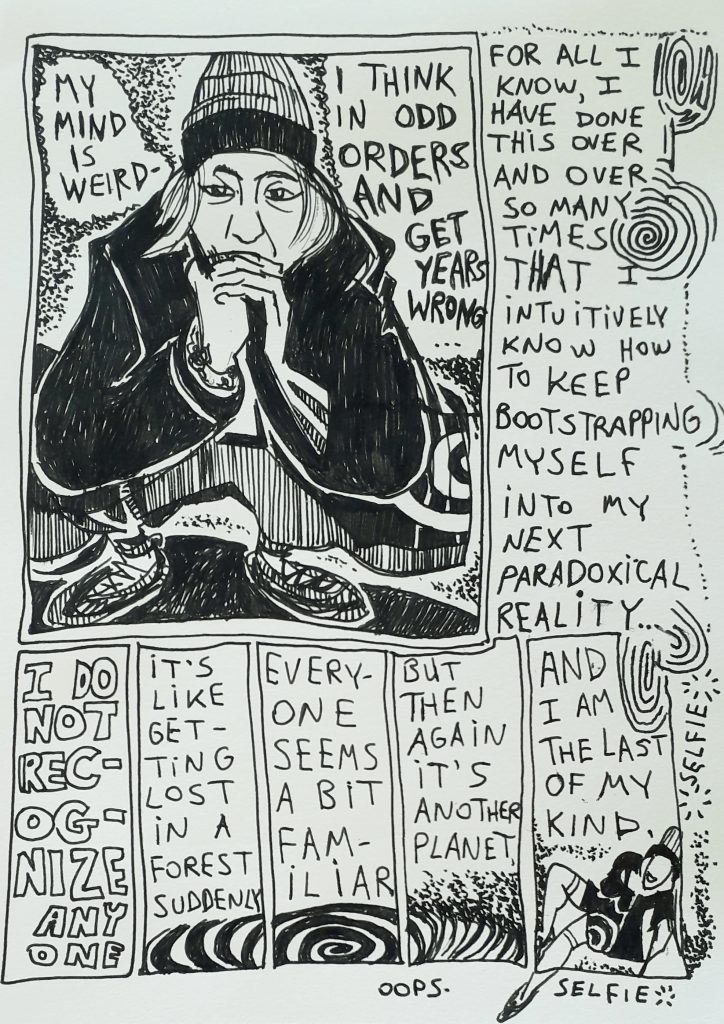 MY
MIND
IS
WEIRD-
I THINK
IN ODD
ORDERS
AND
GET
YEARS
WRONG
....
FOR ALL I
KNOW, I
HAVE DONE
THIS OVER
AND OVER
SO MANY
TIMES
THAT I
INTUITIVELY
KNOW HOW
TO KEEP
BOOTSTRAPPING
MYSELF
INTO MY
NEXT
PARADOXICAL
REALITY...
I DO
NOT
REC-
OG-
NIZE
ANY
ONE
IT'S
LIKE
GET-
TING
LOST
IN A
FOREST
SUDDENLY
EVERY-
ONE
SEEMS
A BIT
FAM-
ILIAR
BUT
THEN
AGAIN
IT'S
ANOTHER
PLANET,
AND
I AM
THE LAST
OF MY
KIND.
SELFIE
OOPS.
SELFIE